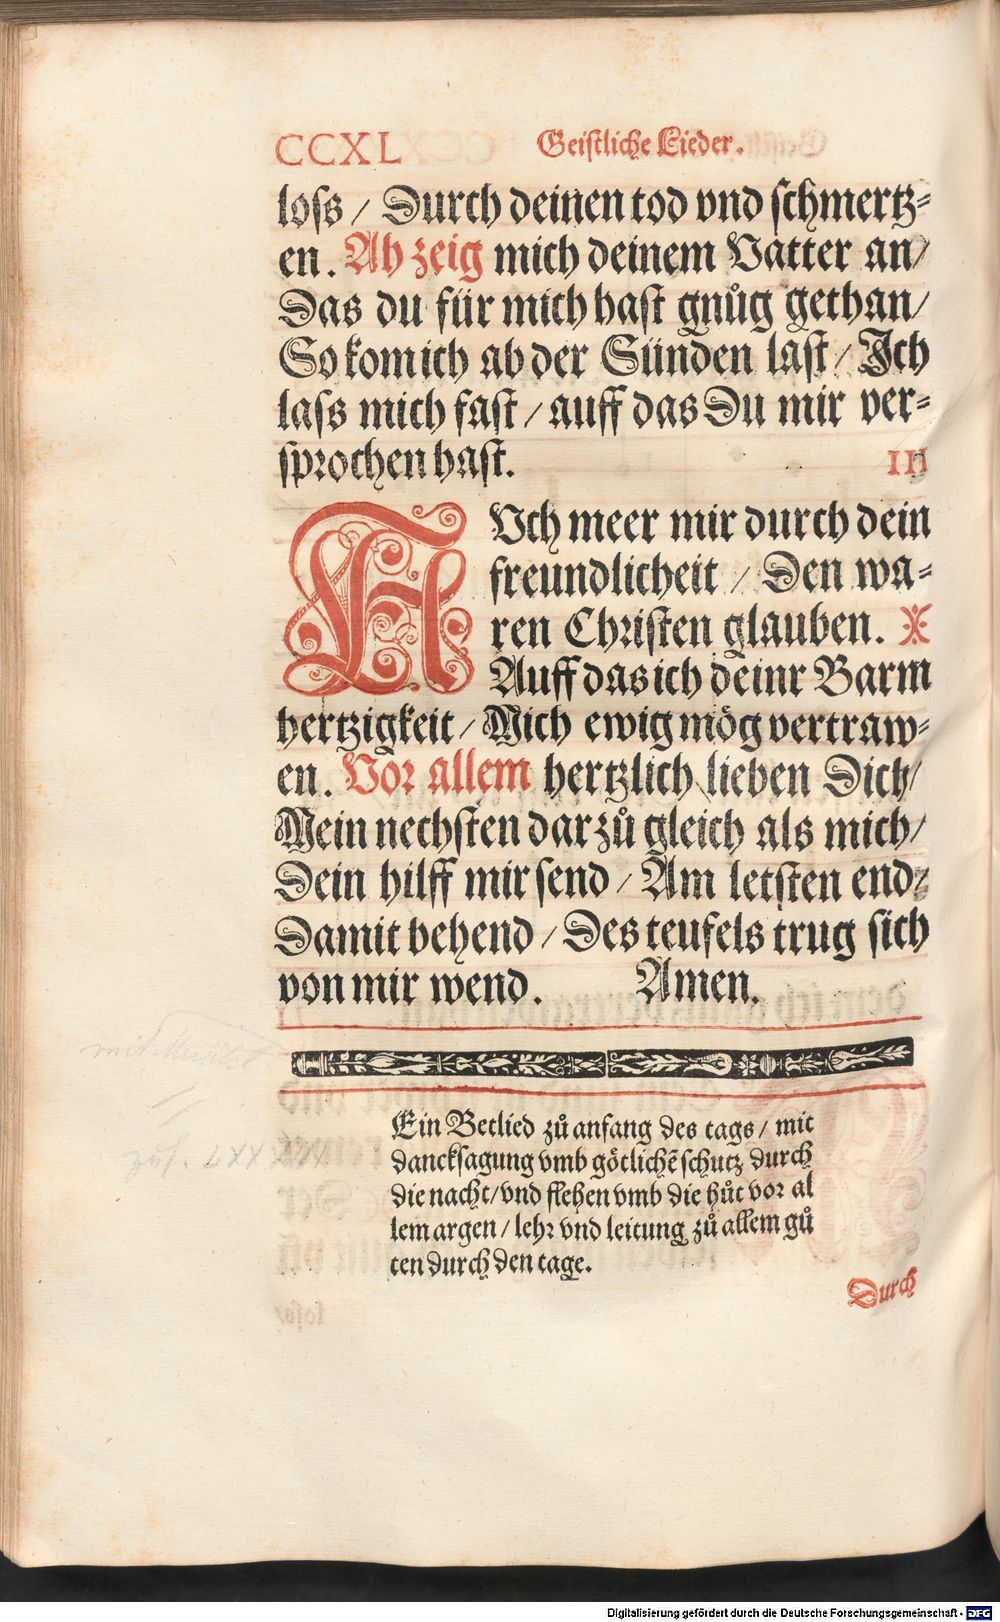 CCXL Geistliche Lieder.
loss / Durch deinen tod vnd schmertz⸗
en. Ah zeig mich deinem Vatter an/
Das du für mich hast gnůg gethan/
So kom ich ab der Sünden last / Ich
lass mich fast / auff das Du mir ver⸗
sprochen hast. III
AVch meer mir durch dein
freundlicheit / Den wa⸗
ren Christen glauben.
Auff das ich deinr Barm
hertzigkeit / Mich ewig mög vertraw⸗
en. Vor allem hertzlich lieben Dich/
Mein nechsten darzů gleich als mich/
Dein hilff mir send / Am letsten end/
Damit behend / Des teufels trug sich
von mir wend. Amen.
Ein Betlied zů anfang des tags / mit
dancksagung vmb götlichẽ schutz durch
die nacht / vnd flehen vmb die hůt vor al
lem argen / lehr vnd leitung zů allem gů
ten durch den tage.
Durch
Digitalisierung gefördert durch die Deutsche Forschungsgemeinschaft - DFG